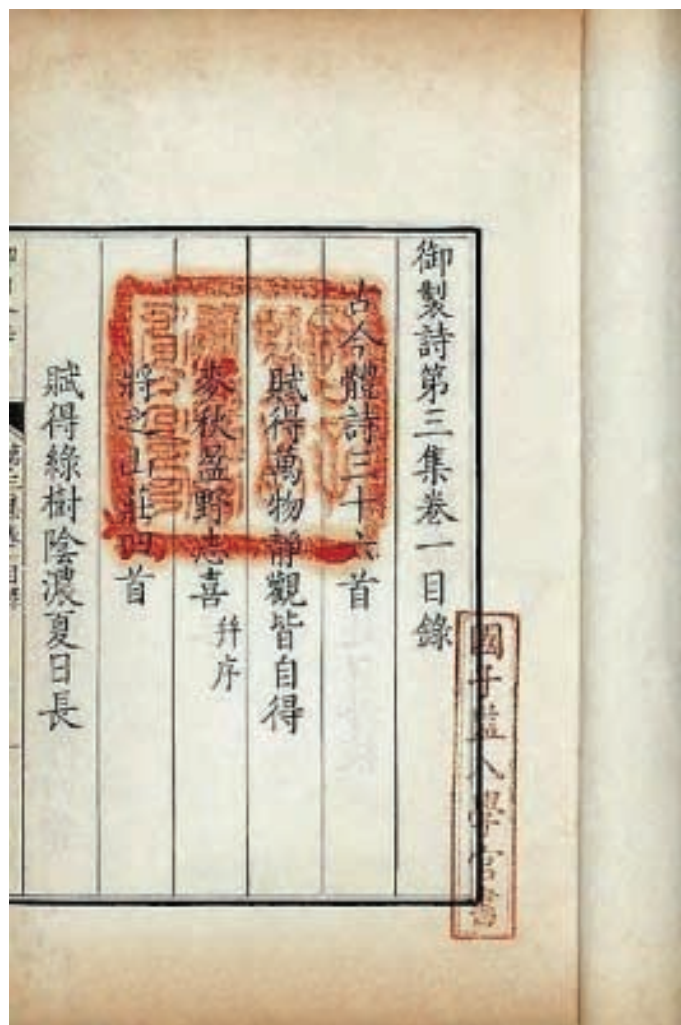 御製詩第三集卷一目錄
古今體詩三十六首
賦得萬物靜觀皆自得
麥秋盈野志喜 幷序
將之山莊四首
賦得綠樹陰濃夏日長
國子監八學官書